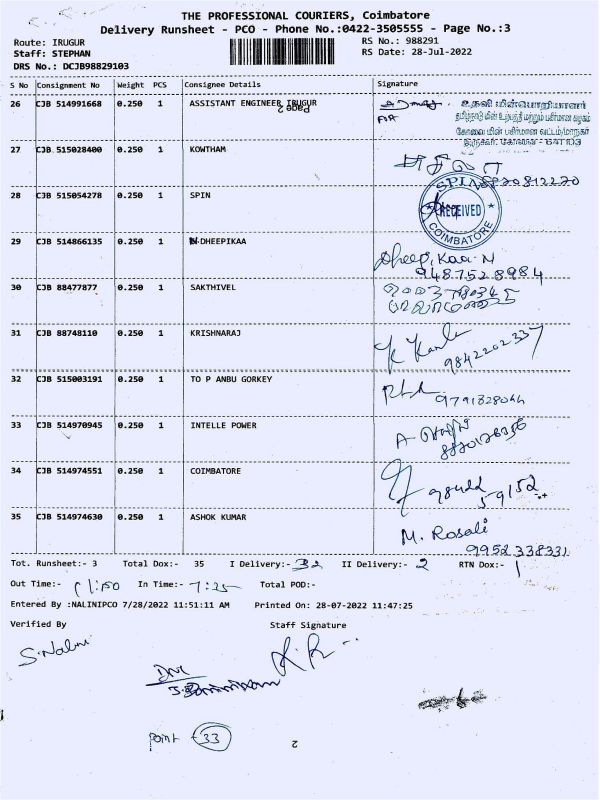 THE PROFESSIONAL COURIERS, Coimbatore
Delivery Runsheet - PCO - Phone No.:0422-3505555 - Page No.:3
Route: IRUGUR RS No.: 988291
Staff: STEPHAN RS Date: 28-Jul-2022
DRS No.: DCJB98829103
S No Consignment No Weight PCS Consignee Details Signature
26 CJB 514991668 0.250 1 ASSISTANT ENGINEER IRUGUR
Page 2
உதவி மின்பொறியாளர்
தமிழ்நாடு மின் உற்பத்தி மற்றும் பகிர்மான கழகம்
கோவை மின் பகிர்மான வட்டம்/மாநகர்
இருகூர், கோவை - 641 103
27 CJB 515028400 0.250 1 KOWTHAM
28 CJB 515054278 0.250 1 SPIN
SPIN
RECEIVED
COIMBATORE
29 CJB 514866135 0.250 1 N.DHEEPIKAA
Dheepikaa N
9487528984
30 CJB 88477877 0.250 1 SAKTHIVEL
31 CJB 88748110 0.250 1 KRISHNARAJ
9842202337
32 CJB 515003191 0.250 1 TO P ANBU GORKEY
9791328044
33 CJB 514970945 0.250 1 INTELLE POWER
34 CJB 514974551 0.250 1 COIMBATORE
98422
59152
35 CJB 514974630 0.250 1 ASHOK KUMAR
M. Rosali
9952338331
Tot. Runsheet:- 3 Total Dox:- 35 I Delivery:- 32 II Delivery:- 2 RTN Dox:- 1
Out Time:- 11:50 In Time:- 7:25 Total POD:-
Entered By :NALINIPCO 7/28/2022 11:51:11 AM Printed On: 28-07-2022 11:47:25
Verified By Staff Signature
S.Nalini
point - 33
2